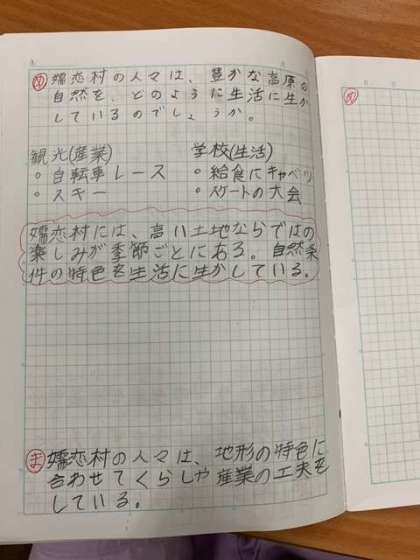 嬬恋村の人々は、豊かな高原の
自然を、どのように生活に生か
しているのでしょうか。
観光(産業)
・自転車レース
・スキー
学校(生活)
・給食にキャベツ
・スケートの大会
嬬恋村には、高い土地ならではの
楽しみが季節ごとにある。自然条
件の特色を生活に生かしている。
ま 嬬恋村の人々は、地形の特色に
合わせてくらしや産業の工夫を
している。